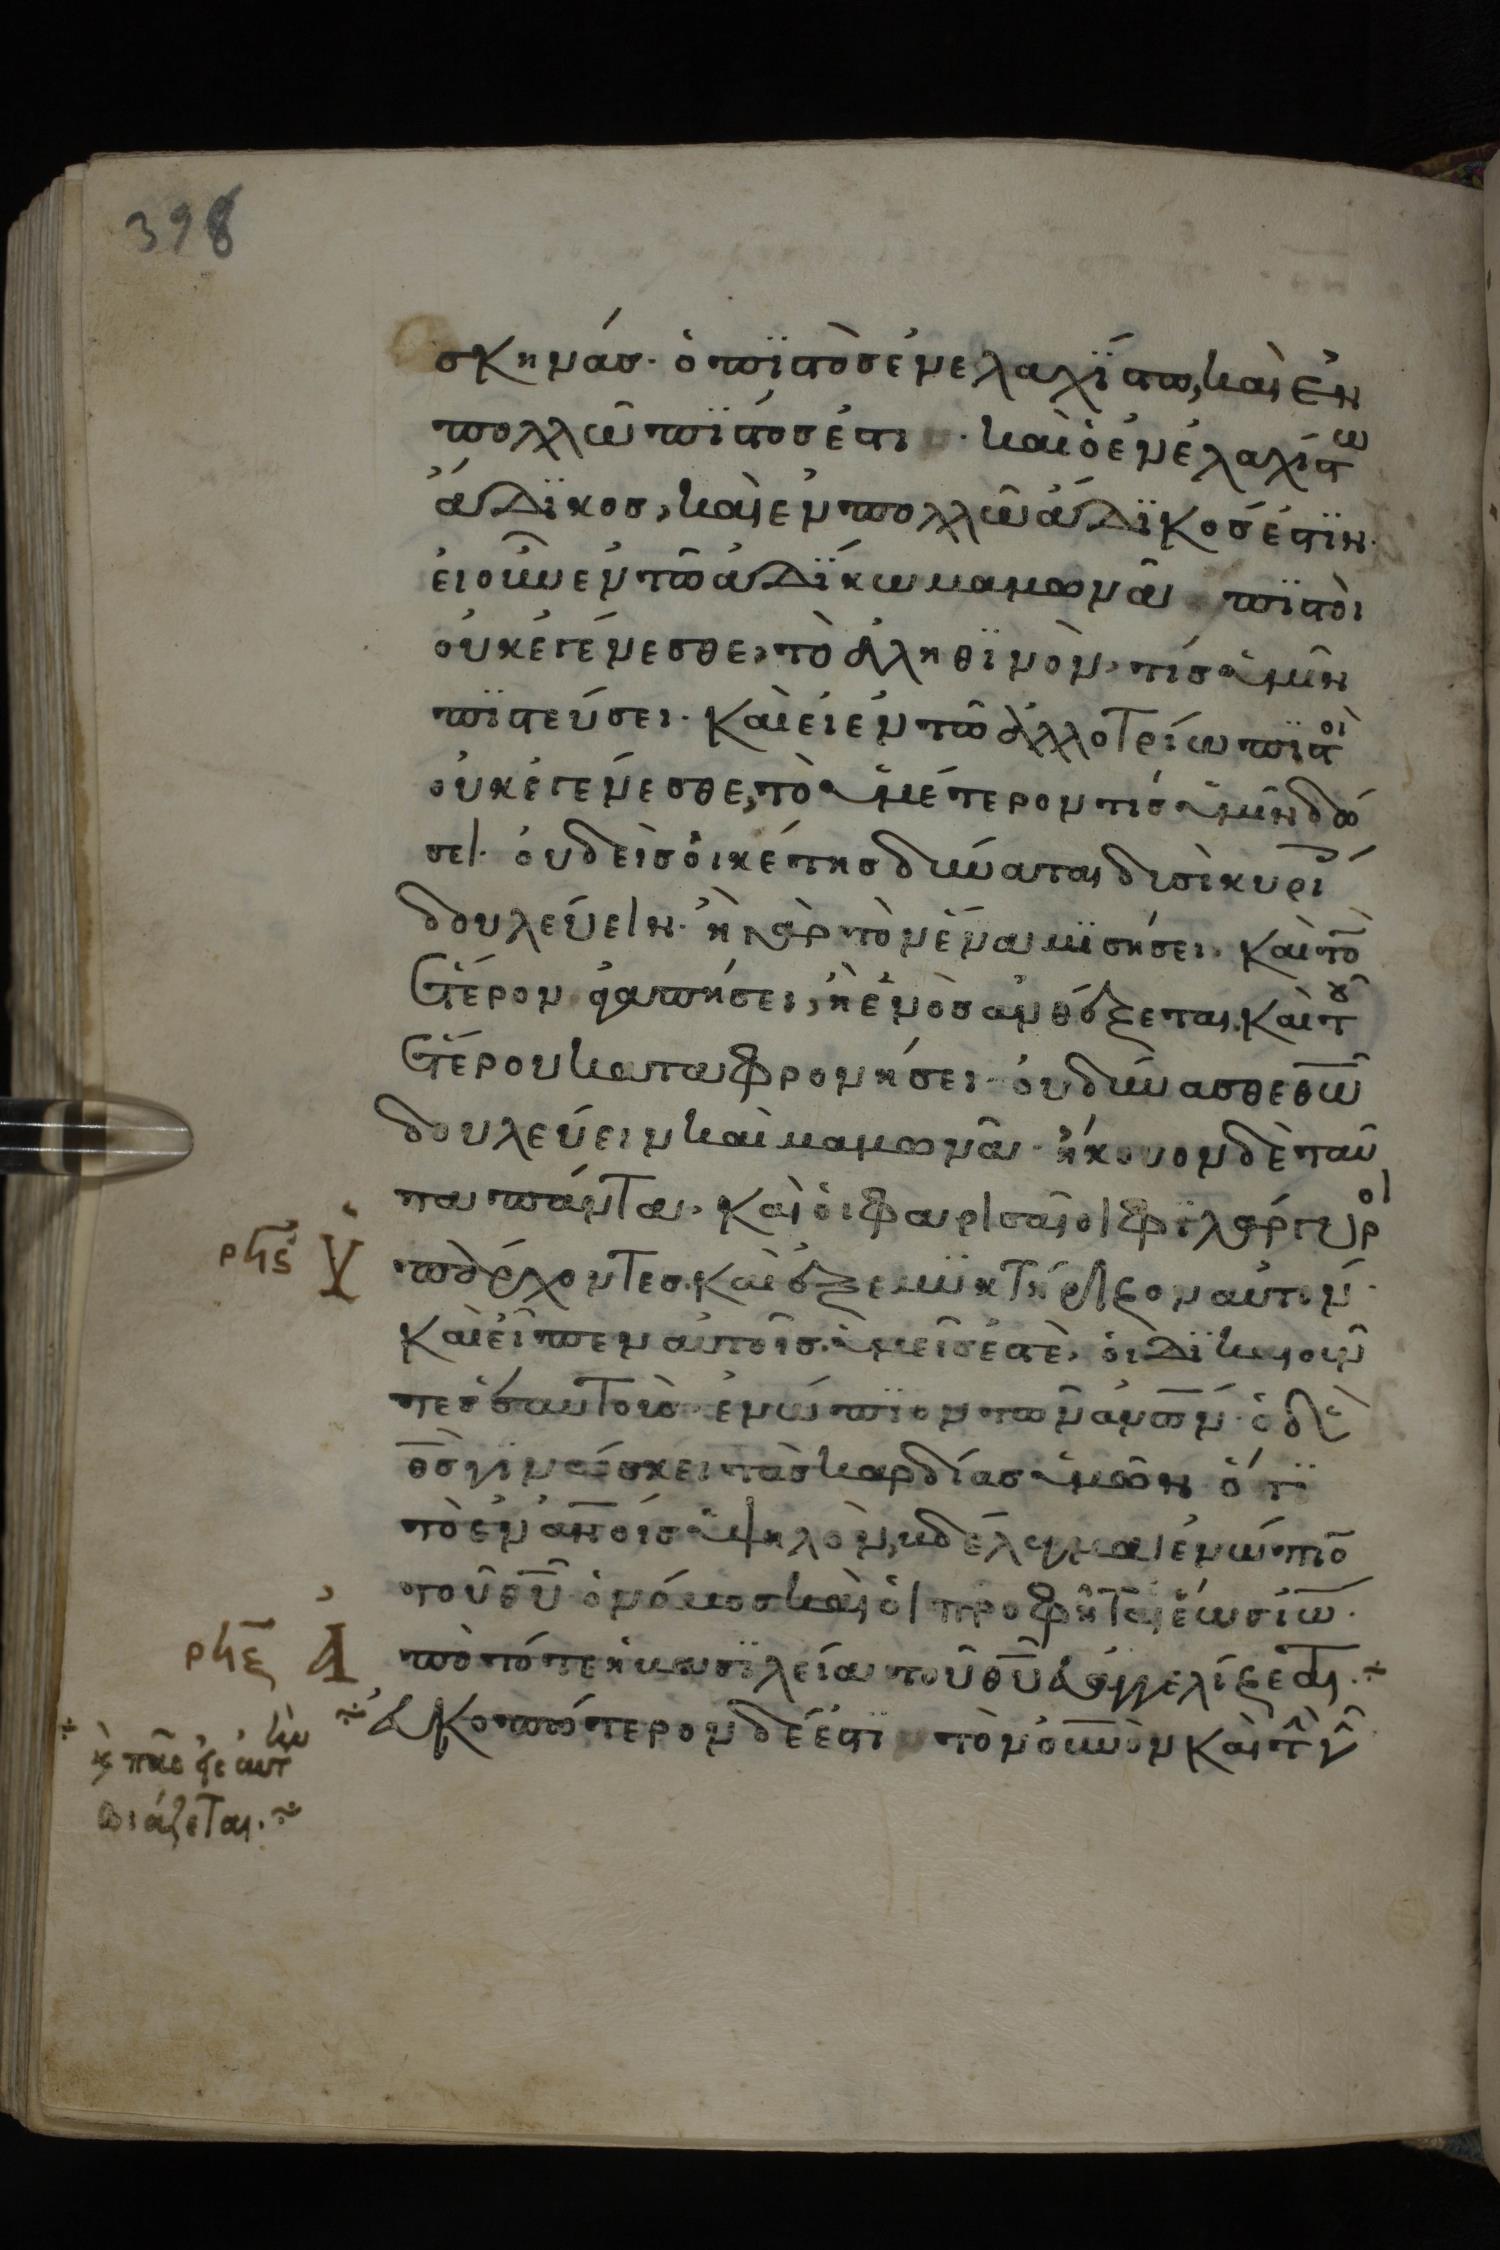 398
σκηνάσ· ὁ πϊστὸσ ἐν ἐλαχΐστω, καὶ ἐν
πολλῶ πϊστόσ ἐστι · καὶ ὁ ἐν ἐλαχίστω
ἄδϊκοσ, καὶ ἐν πολλῶ ἄδϊκοσ ἐστϊν·
εἰ οὖν ἐν τῶ ἀδΐκω μαμωνᾶ πϊστοὶ
οὐκ ἐγένεσθε, τὸ ἀληθϊνὸν τίσ ὑμῖν
πϊστεύσει· καὶ εἰ ἐν τῶ ἀλλοτρίω πϊστοὶ
οὐκ ἐγένεσθε, τὸ ὑμέτερον τίσ ὑμῖν δώ
σει· οὐδεὶσ οἰκέτησ δύναται δυσὶ κυρί
δουλεύειν· ἢ γὰρ τὸν ἕνα μϊσήσει· καὶ τὸ
ἕτερον ἀγαπήσει, ἢ ἑνὸσ ἀνθέξεται καὶ τοῦ
ἑτέρου καταφρονήσει· οὐ δύνασθε θω
δουλεύειν καὶ μαμωνᾶ· ἤκουον δὲ ταῦ
τα πάντα· καὶ οἱ φαρισαῖοι φϊλάργυροι
ρπϛ Ὑ
πάρχοντεσ· καὶ ἐξεμϋκτήρϊζον αὐτόν·
καὶ εἶπεν αὐτοῖσ· ὑμεῖσ ἐστὲ, οἱ δϊκαιοῦν
τεσ ἑαυτοὺσ ἐνώπϊον τῶν ἀνων· ὁ δὲ
θσ γϊνώσκει τὰσ καρδίασ ὑμῶν ὅτϊ
τὸ ἐν ανοισ ὑψηλὸν, βδέλυγμα ἐνώπιο
τοῦ θυ· ὁ νόμοσ καὶ οἱ προφῆται ἕωσ ιω·
ρπζ Ἀ
πὸ τότε ἡ βασϊλεία τοῦ θυ εὐαγγελίζεται·÷
÷ κ πᾶσ εἰσ αὐτὴν
βιάζεται·÷
÷ εὐκοπώτερον δέ ἐστϊ τὸν ουνον καὶ τὴν γῆν